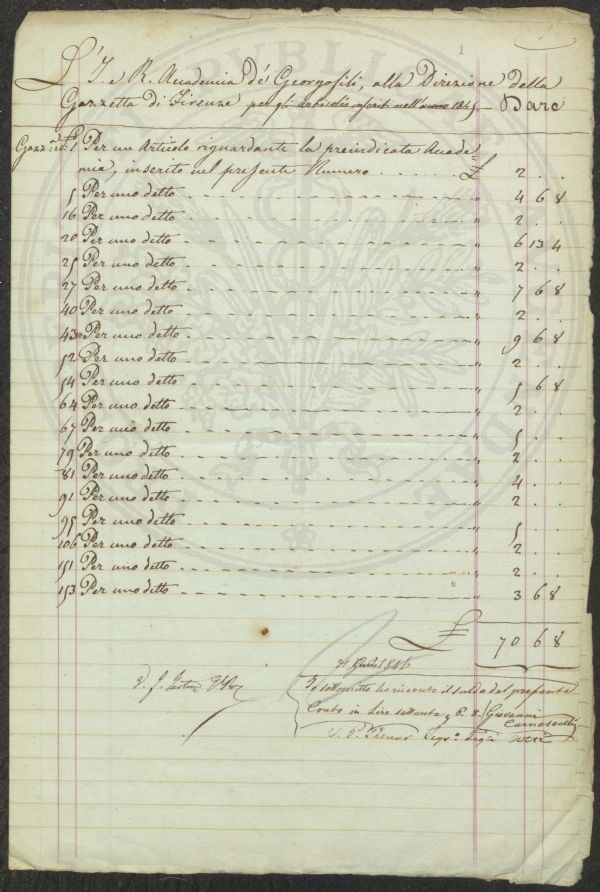 1
L'I. e R. Accademia de' Georgofili, alla Direzione della
Gazzetta di Firenze per gli articoli inseriti nell'anno 1845 — Dare
Gazz.ª N.º 1 Per un Articolo riguardante la preindicata Accade
mia, inserito nel presente Numero . . . . . £ 2 . .
5 Per uno detto " 4 6 8
16 Per uno detto " 2 . .
20 Per uno detto " 6 13 4
25 Per uno detto " 2 . .
27 Per uno detto " 7 6 8
40 Per uno detto " 2 . .
43 Per uno detto " 9 6 8
52 Per uno detto " 2 . .
54 Per uno detto " 5 6 8
64 Per uno detto " 2 . .
67 Per uno detto " 5 . .
79 Per uno detto " 2 . .
81 Per uno detto " 4 . .
91 Per uno detto " 2 . .
95 Per uno detto " 5 . .
106 Per uno detto " 2 . .
151 Per uno detto " 2 . .
153 Per uno detto " 3 6 8
£ 70 6 8
1846
Io sottoscritto ho ricevuto il saldo del presente
Conto in Lire settanta, 6. 8. Giovanni
Segr.º degli Atti